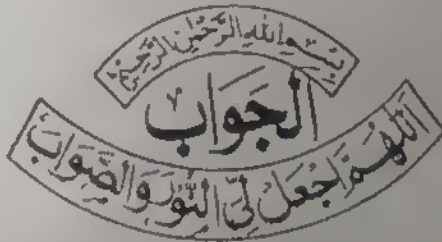 بِسْمِ اللهِ الرَّحْمٰنِ الرَّحِيْمِ
اَلْجَوَابْ
اَللّٰهُمَّ اجْعَلْ لِيَ النُّوْرَ وَالصَّوَابَ